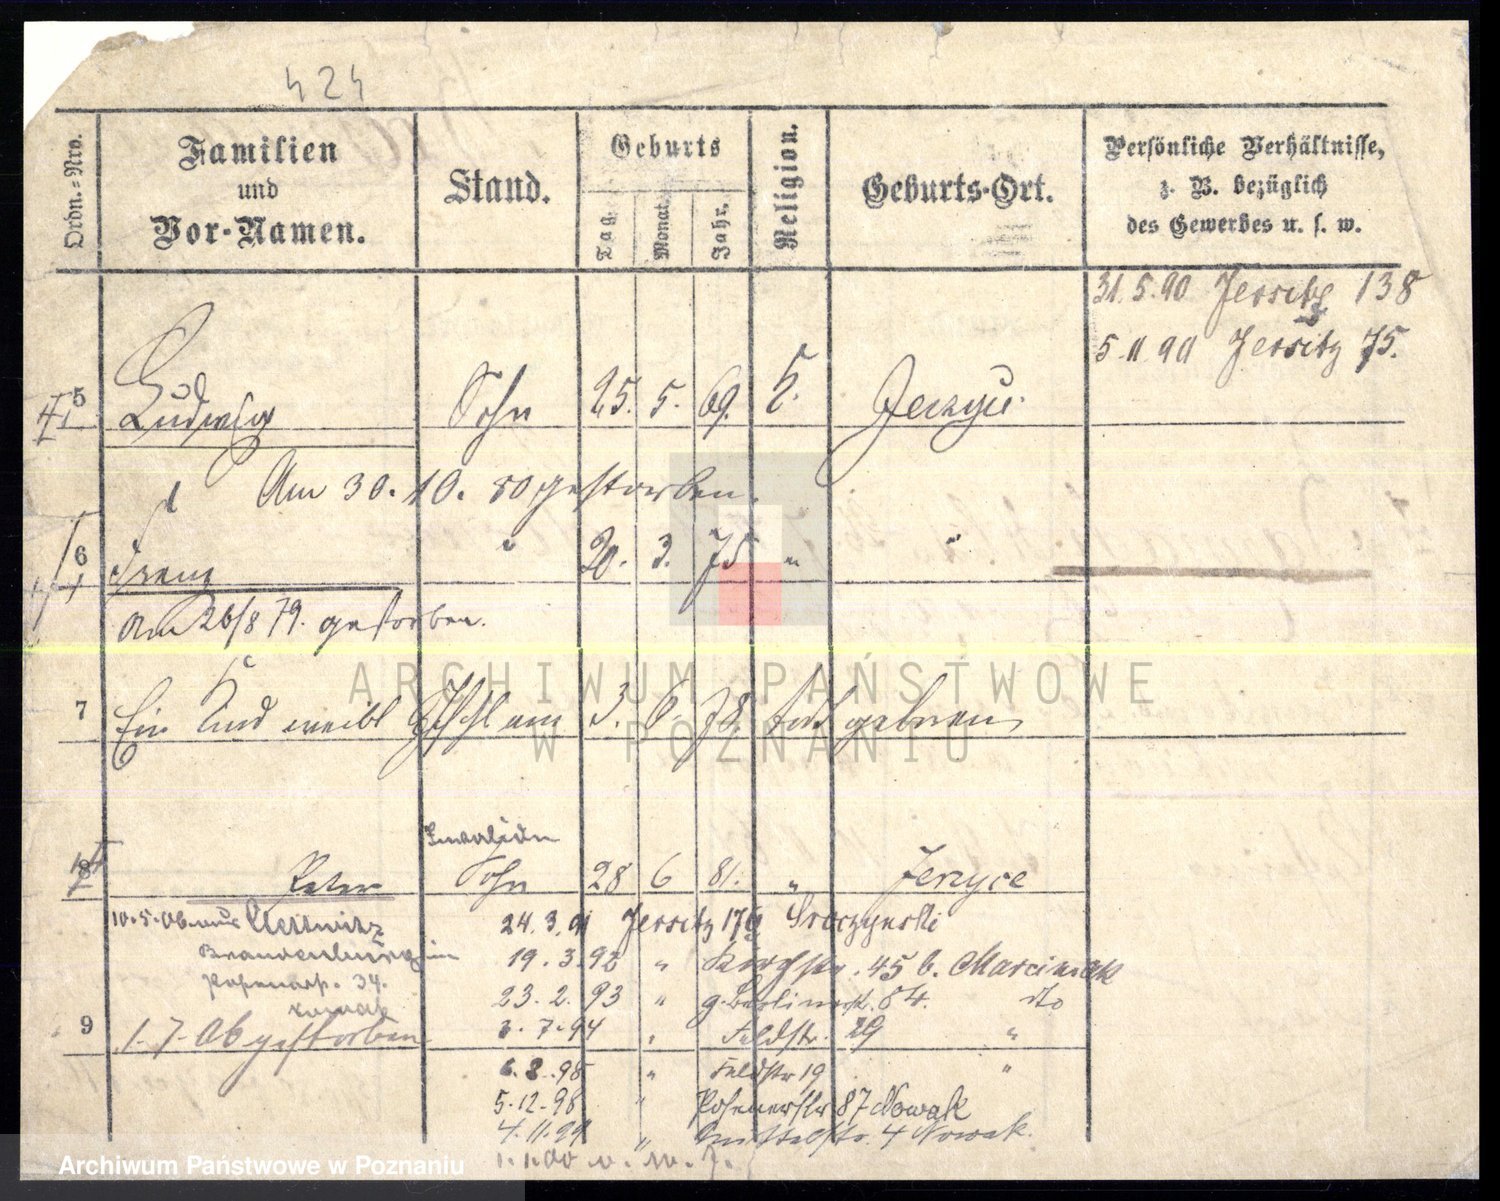 424
Ordn.-Nro.
Familien
und
Vor-Namen.
Stand.
Geburts
Tag.
Monat.
Jahr.
Religion.
Geburts-Ort.
Persönliche Verhältnisse,
z. B. bezüglich
des Gewerbes u. s. w.
31.5.90 Jersitz 138
5.11.90 Jersitz 75.
5 Ludwig Sohn 25. 5. 69. k. Jerzyce
Am 30. 10. 80 gestorben.
6 Franz " 20. 3. 75 " "
Am 26/8 79. gestorben.
7 Ein Kind weibl Geschl am 3. 6 78. todt geboren
Invaliden
8 Peter Sohn 28 6 81. " Jerzyce
10.5.06. nach
Brandenburg
Posenerst. 34.
Nowak
24.3.91 Jersitz 176 Sroczynski
19.3.92 " Kirchstr. 45 b. Marciniak
23.2.93 " gr. Berlinerst. 84. dto
3.7.94 " Feldstr. 29 "
9 1.7.06 gestorben
6.3.95 " Feldstr 19 "
5.12.98 " Posenerstr 87 Nowak
4.11.99 " Mittelstr. 4 Nowak.
1.1.00
ARCHIWUM PAŃSTWOWE
W POZNANIU
Archiwum Państwowe w Poznaniu